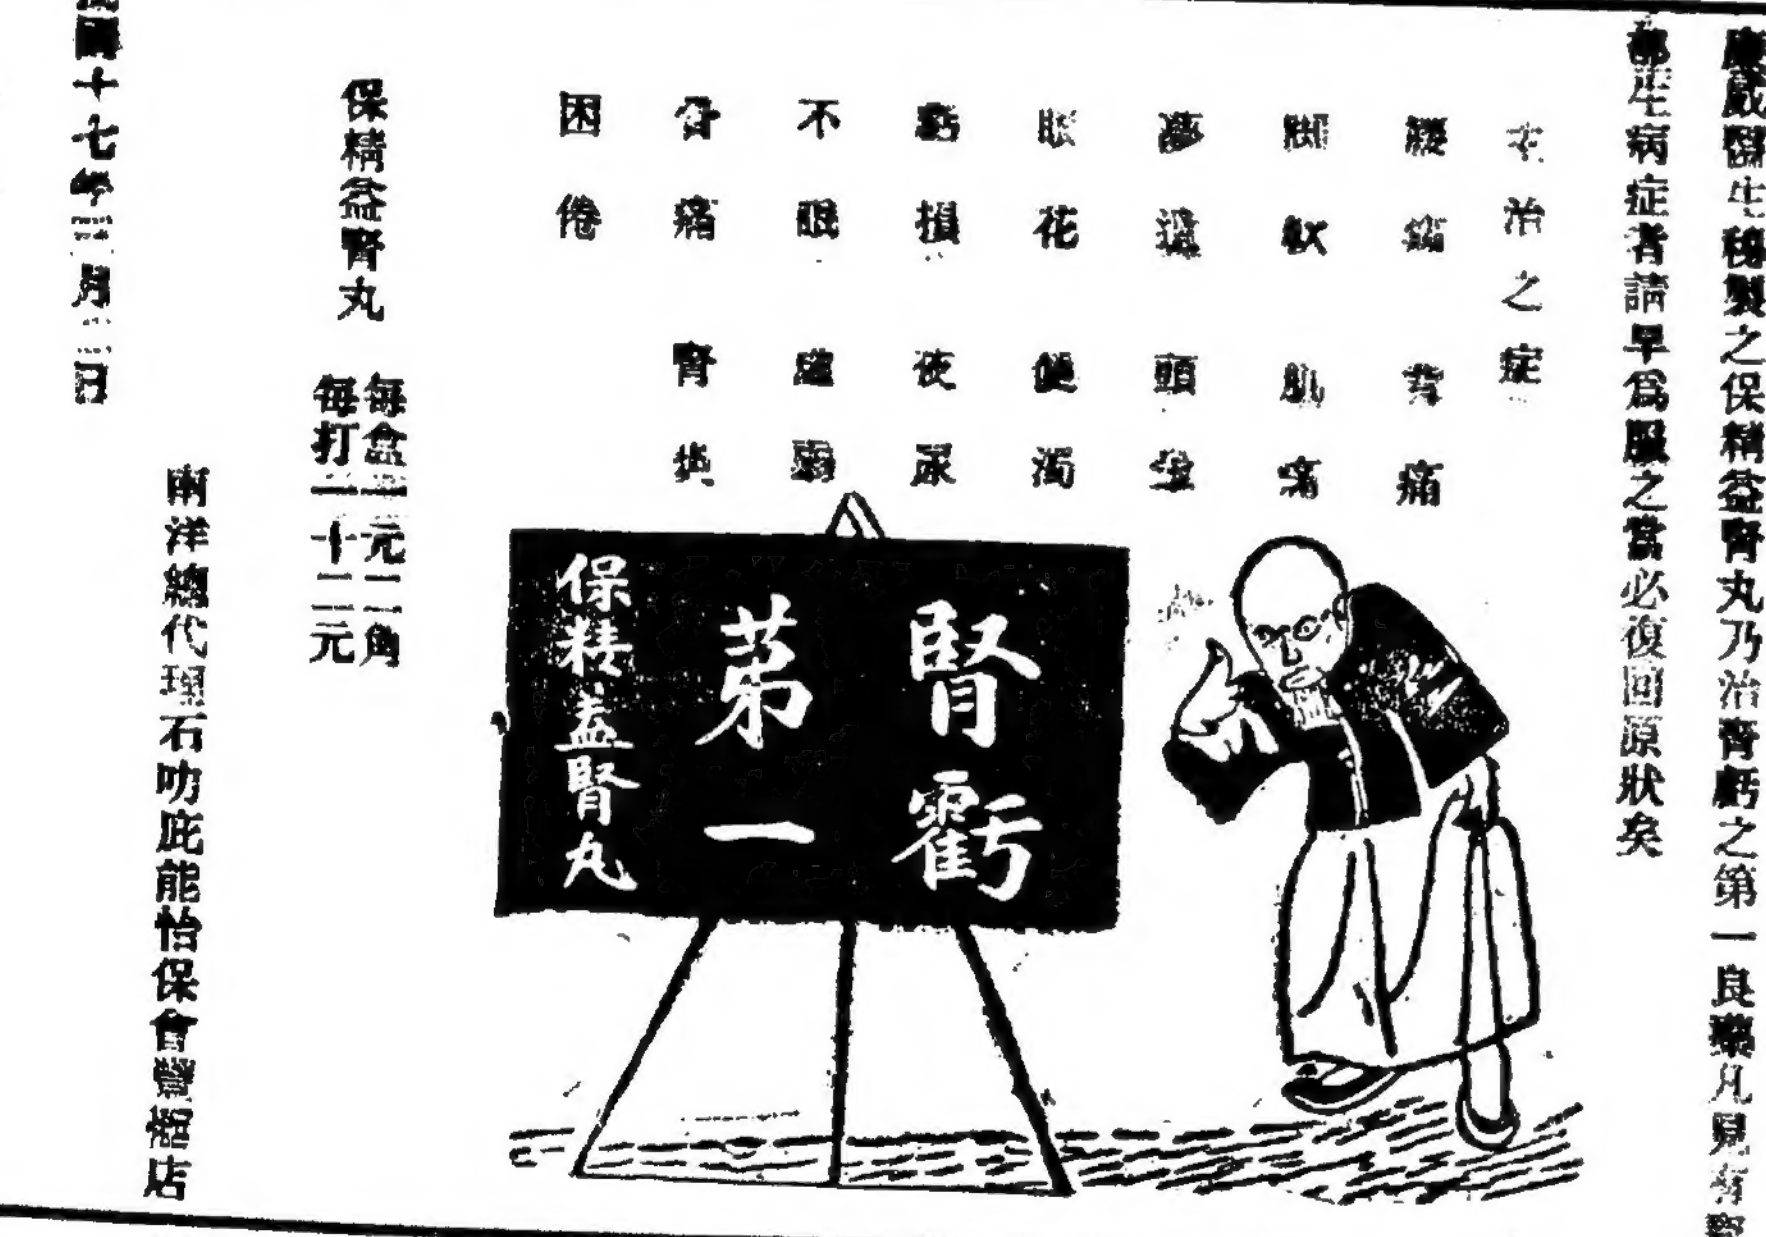 威醫生秘製之保精益腎丸乃治腎虧之第一良藥凡見有
部生病症者請早爲服之當必復回原狀矣
主治之症
腰痛 背痛
脚軟 肌痛
夢遺 頭暈
眼花 便濁
虧損 夜尿
不眠 虛弱
骨痛 腎
困倦
腎虧
第一
保精益腎丸
保精益腎丸
每盒一元二角
每打一十二元
南洋總代理石叻庇能怡保會店
十七年月日